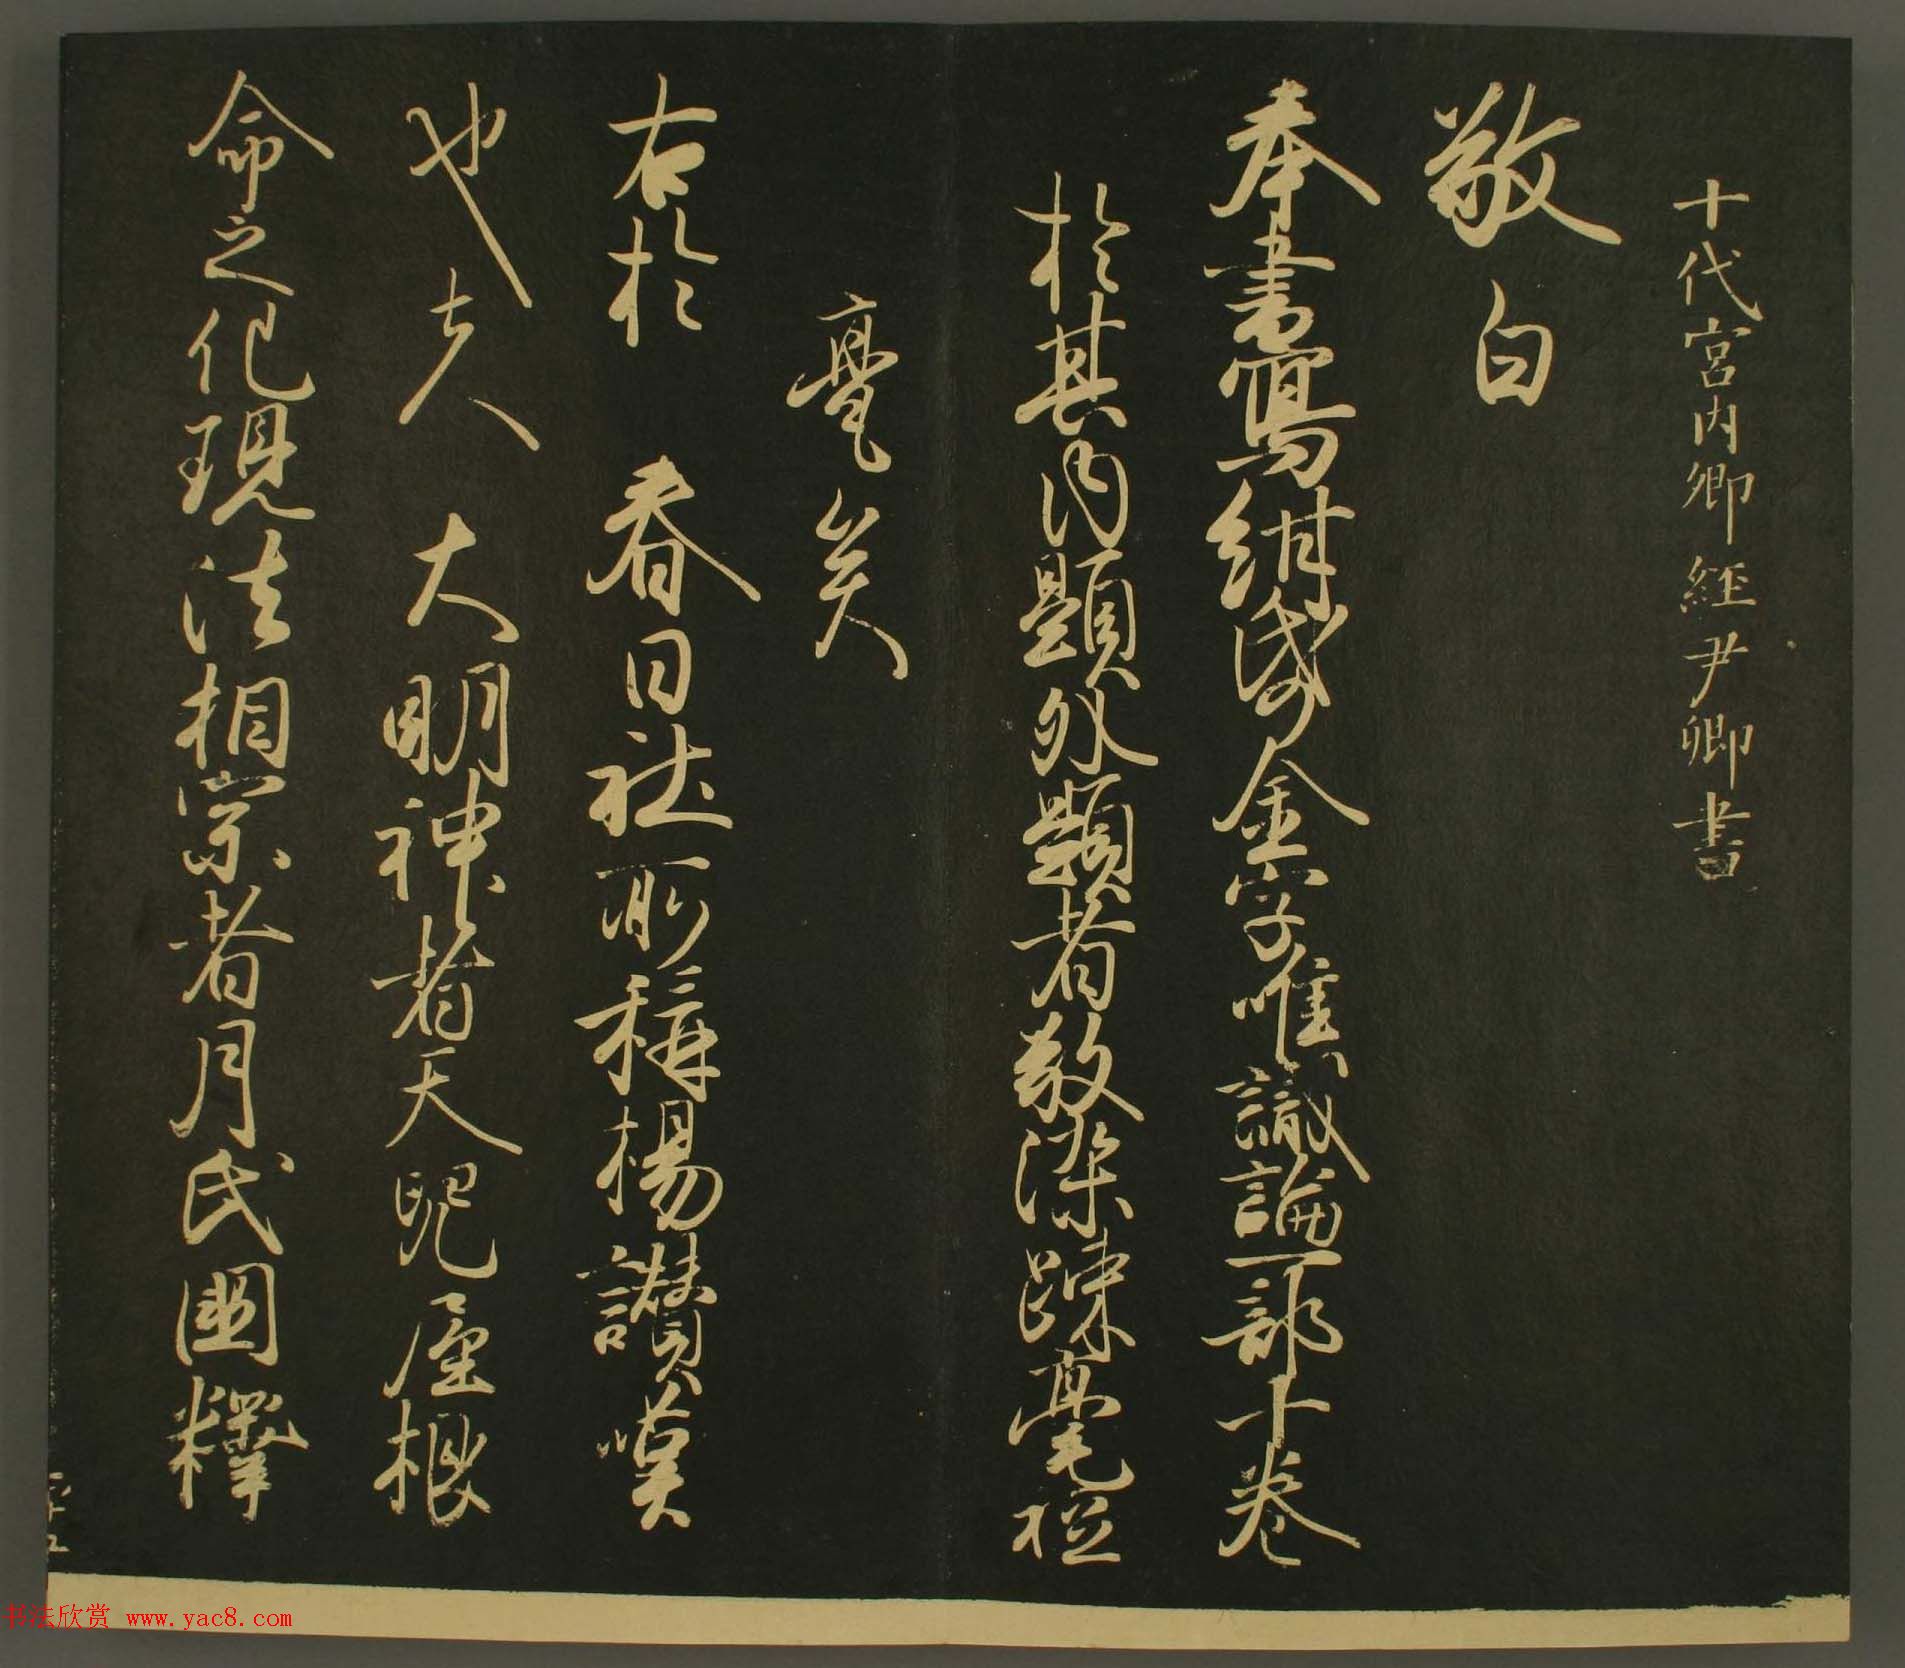 十代宮内卿経尹卿書
敬白
奉書寫紺紙金字唯識論一部十卷
於其内題外題者敬染疎毫
毫矣
右於 春日社所称揚讃嘆
也夫 大明神者天児屋根
命之化現法相宗者月氏国釋
书法欣赏 www.yac8.com